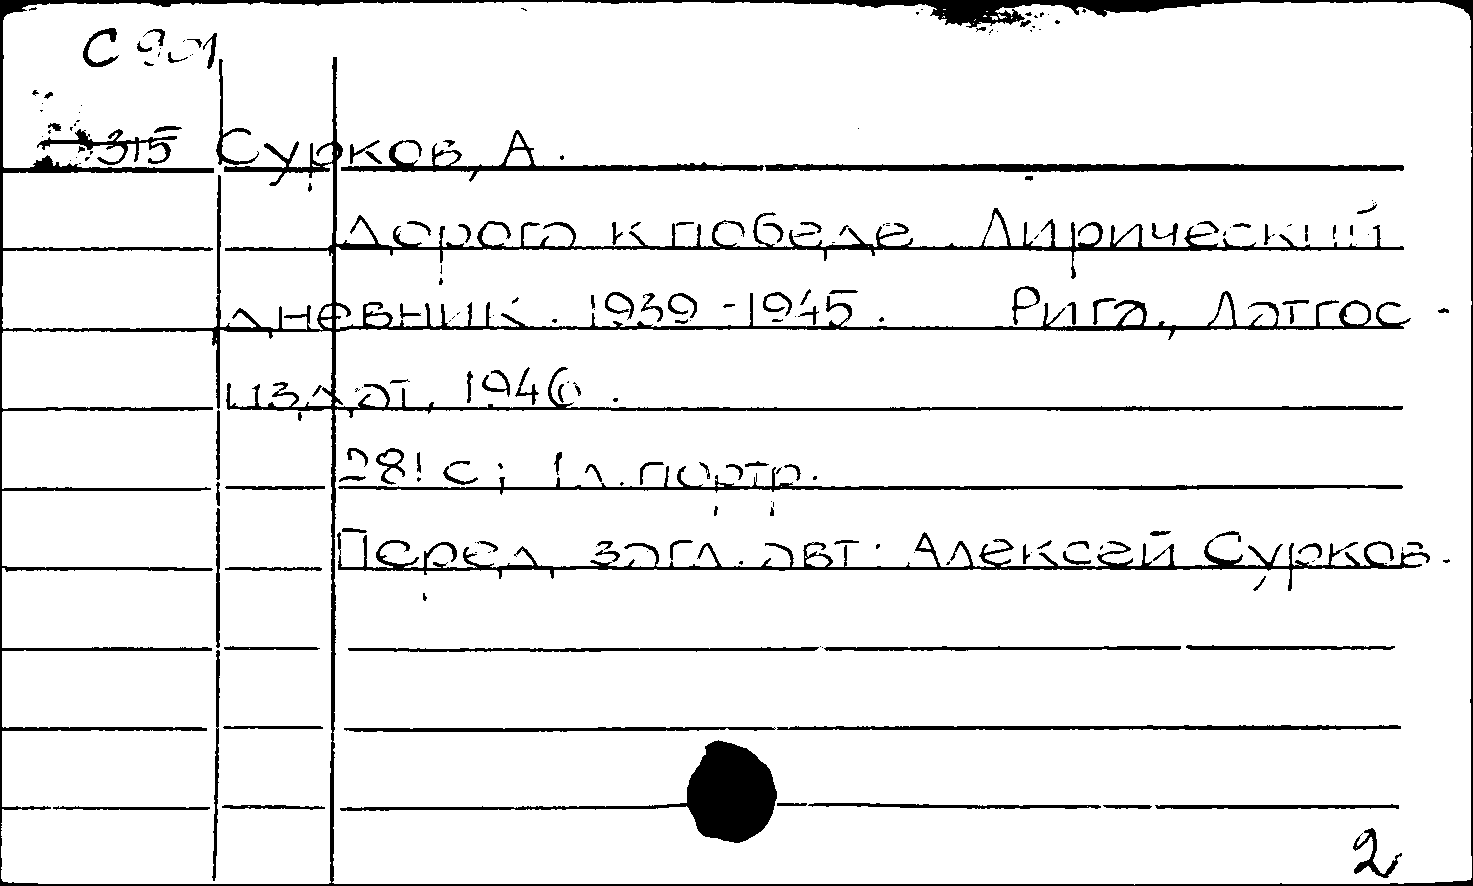 С 901
315 Сурков, А.
Дорога к победе. Лирический
дневник. 1939-1945. Рига, Латгос-
издат, 1946.
281 с; 1 л. портр.
Перед загл. авт: Алексей Сурков.
2